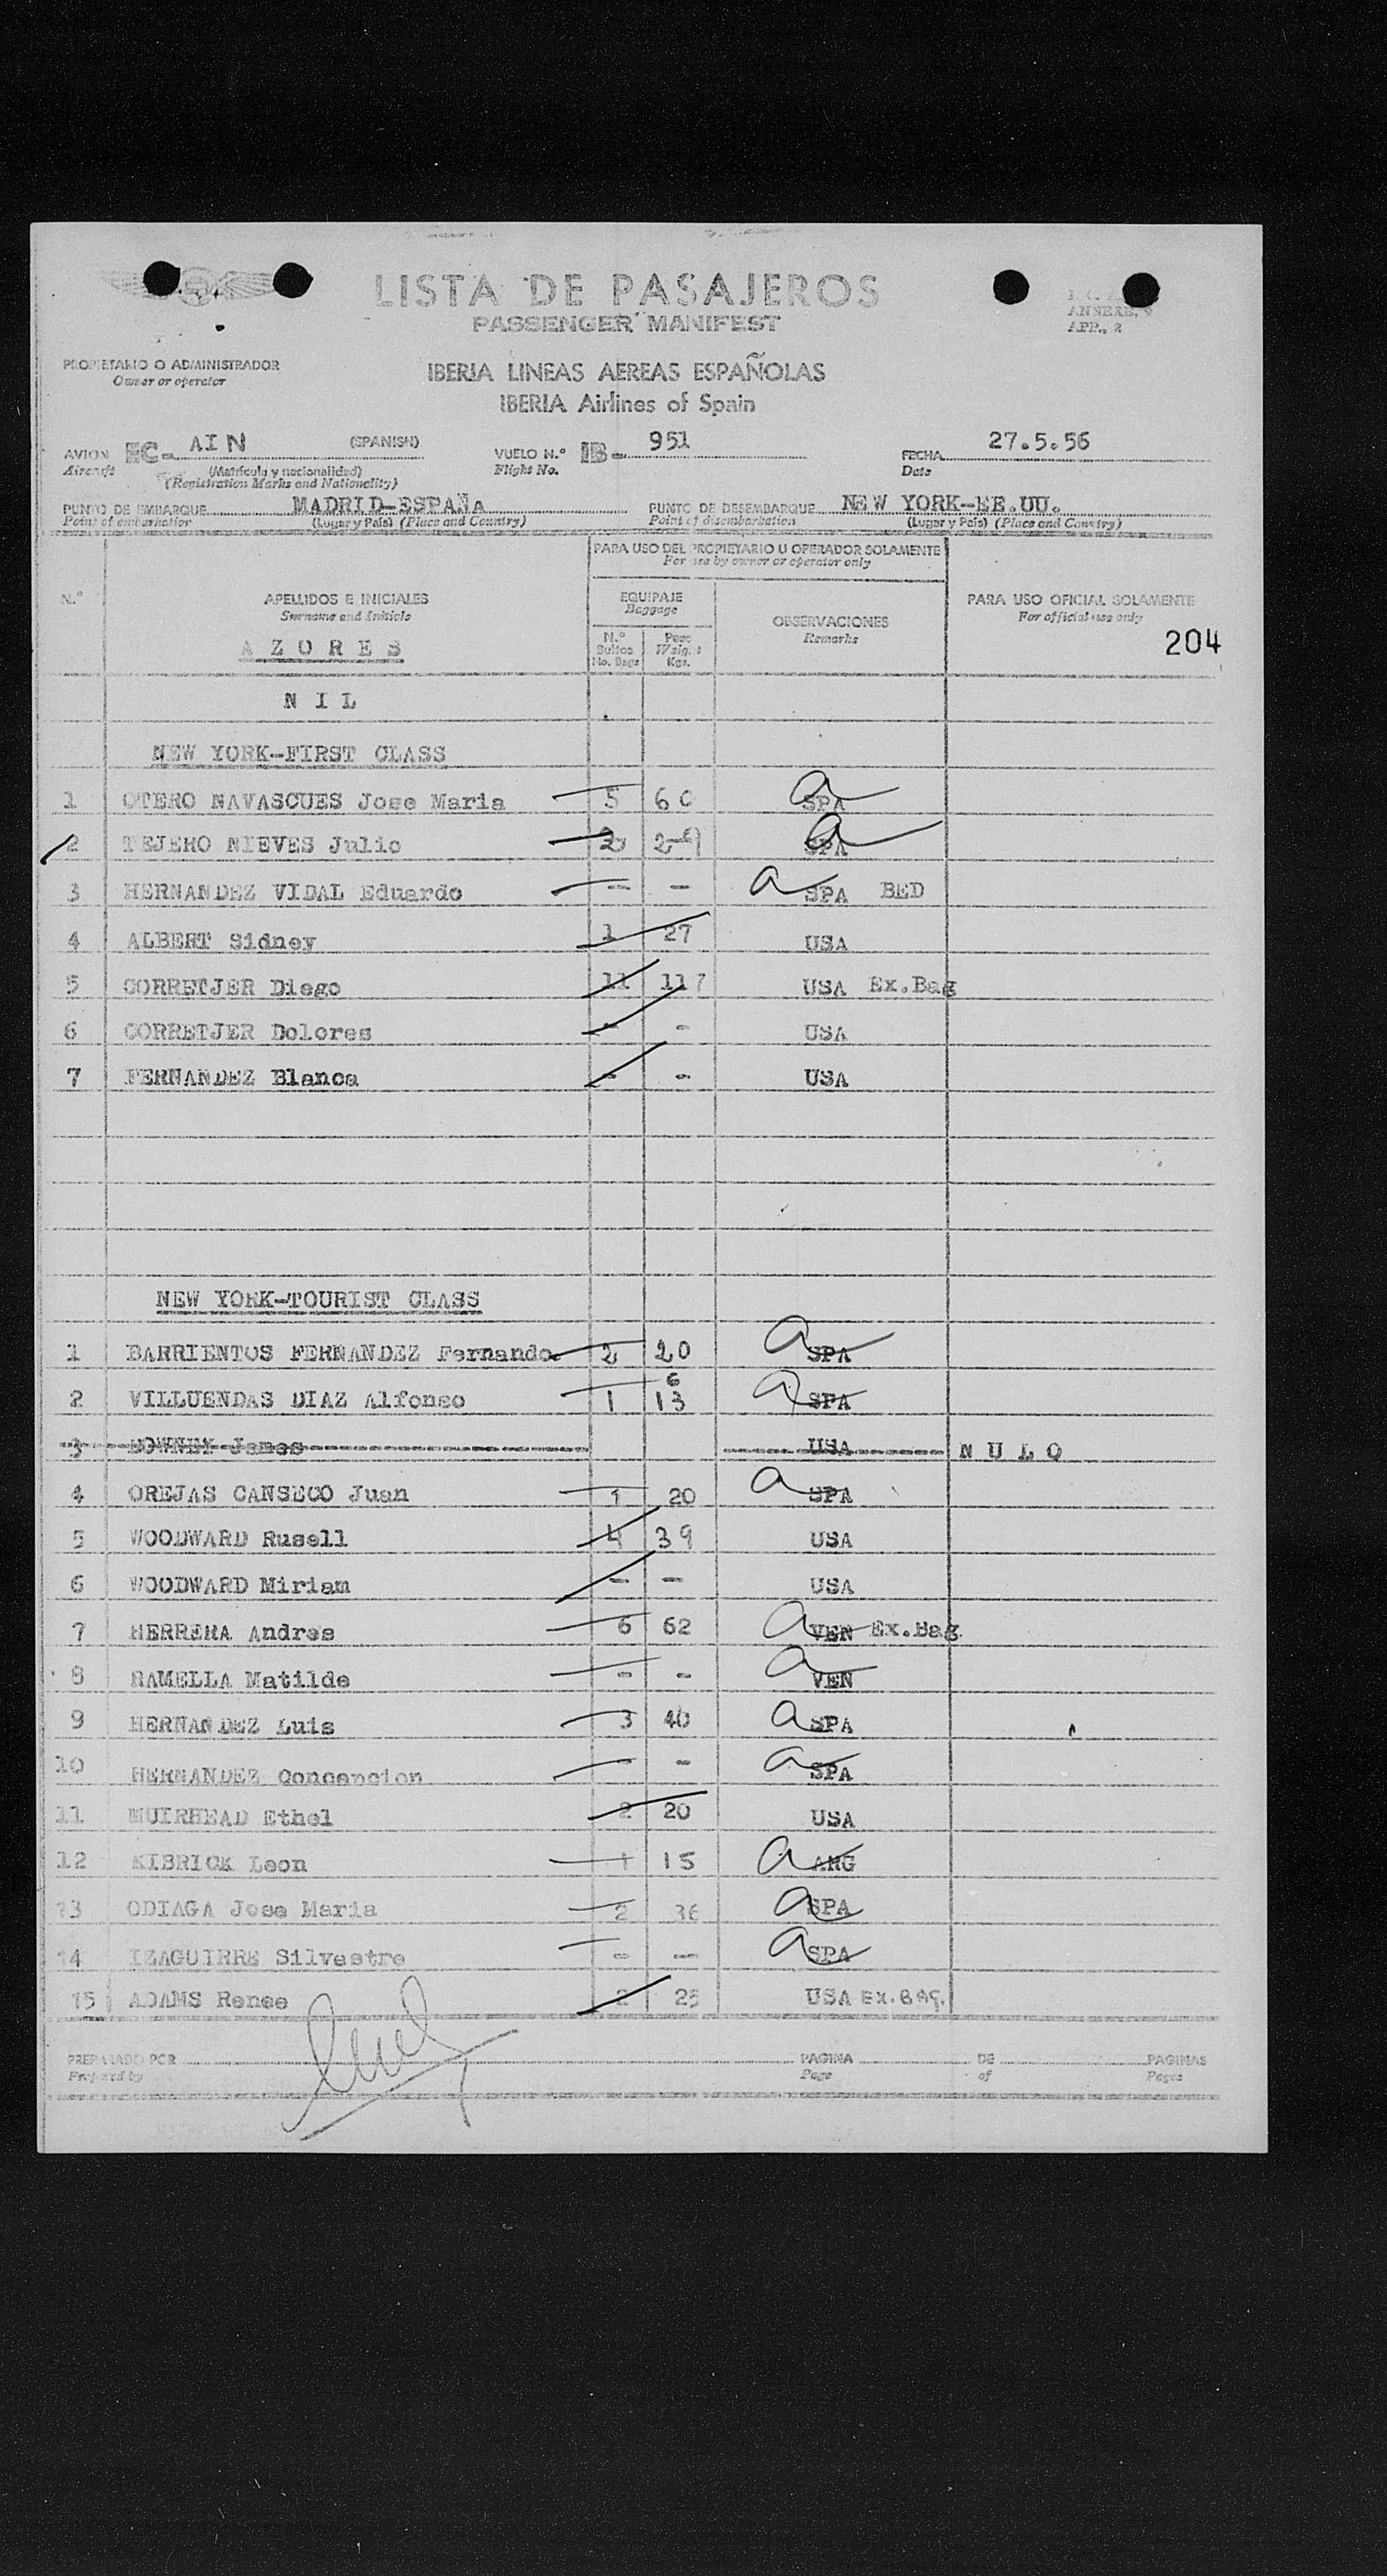 LISTA DE PASAJEROS
PASSENGER MANIFEST
ANNEXE, 9
APP., 2
PROPIETARIO O ADMINISTRADOR
Owner or operator
IBERIA LINEAS AEREAS ESPAÑOLAS
IBERIA Airlines of Spain
AVION EC- AIN (SPANISH) VUELO N.° IB- 951 FECHA 27.5.56
Aircraft (Matrícula y nacionalidad) Flight No. Date
(Registration Marks and Nationality)
PUNTO DE EMBARQUE MADRID-ESPAÑA PUNTO DE DESEMBARQUE NEW YORK-EE.UU.
Point of embarkation (Lugar y País) (Place and Country) Point of disembarkation (Lugar y País) (Place and Country)
PARA USO DEL PROPIETARIO U OPERADOR SOLAMENTE
For use by owner or operator only
N.° APELLIDOS E INICIALES EQUIPAJE OBSERVACIONES PARA USO OFICIAL SOLAMENTE
Surname and Initials Baggage Remarks For official use only
AZORES N.° Bultos No. Bags Peso Weight Kgs. 204
NIL
NEW YORK-FIRST CLASS
1 OTERO NAVASCUES Jose Maria 5 60 a SPA
2 TEJERO NIEVES Julio 2 29 a SPA
3 HERNANDEZ VIDAL Eduardo - - a SPA BED
4 ALBERT Sidney 1 27 USA
5 CORRETJER Diego 11 117 USA Ex.Bag
6 CORRETJER Dolores - - USA
7 FERNANDEZ Blanca - - USA
NEW YORK-TOURIST CLASS
1 BARRIENTOS FERNANDEZ Fernando. 2 20 a SPA
2 VILLUENDAS DIAZ Alfonso 1 13 6 a SPA
3 DOWNEY James USA NULO
4 OREJAS CANSECO Juan 1 20 a SPA
5 WOODWARD Rusell 4 39 USA
6 WOODWARD Miriam - - USA
7 HERRERA Andres 6 62 a VEN Ex.Bag
8 RAMELLA Matilde - - a VEN
9 HERNANDEZ Luis 3 40 a SPA
10 HERNANDEZ Concepcion - - a SPA
11 MUIRHEAD Ethel 2 20 USA
12 KIBRICK Leon 1 15 a ARG
13 ODIAGA Jose Maria 2 36 a SPA
14 IZAGUIRRE Silvestre - - a SPA
15 ADAMS Renee 2 25 USA EX.BAG.
PREPARADO POR PAGINA DE PAGINAS
Prepared by Page of Pages